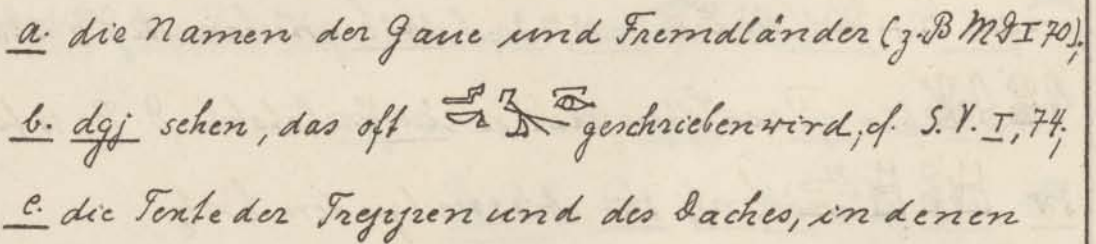 a. die Namen der Gaue und Fremdländer (z.B MD I 70);
b. dgj sehen, das oft geschrieben wird, cf. S.V. I, 74;
c. die Texte der Treppen und des Daches, in denen